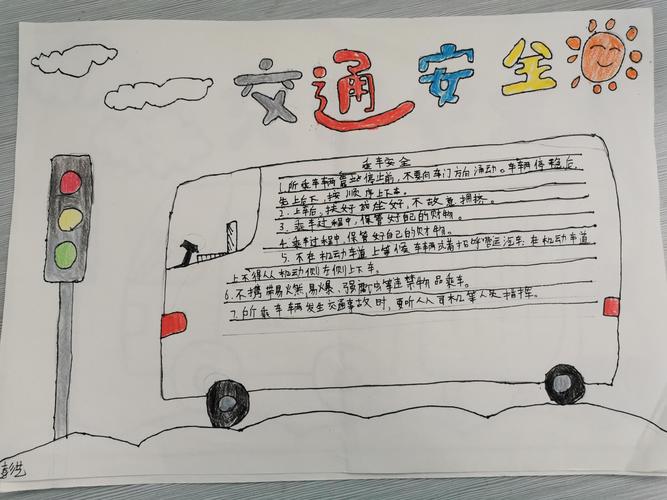 交通安全
乘车安全
1.所乘车车辆靠站停止前，不要向车门方向涌动。车辆停稳后，
先上后下，按顺序上下车。
2.上车后，扶好或坐好，不故意拥挤。
3.乘车过程中，保管好自己的财物。
4.乘车过程中，保管好自己的财物。
5.不在机动车道上等候车辆或者招呼营运汽车，在机动车道
上不得从机动侧左侧上下车。
6.不携带易火然，易爆、强腐虫等违禁物品乘车。
7.所乘车车辆发生交通事故时，要听从司机等人员指挥。